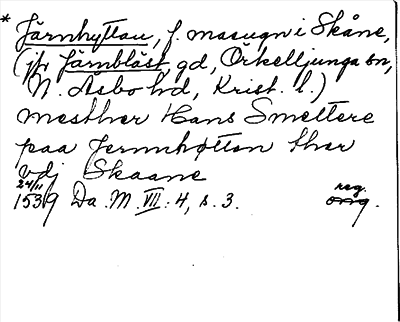 * Järnhyttan, f. masugn i Skåne,
(jfr Järnblåst, gd, Örkelljunga sn,
N. Åsbo hd, Krist. l.)
mesther Hans Smeltere
paa Jernnhøtten ther
vdj Skaane
24/11 1539 Da. M. VII: 4, s. 3. orig. reg.